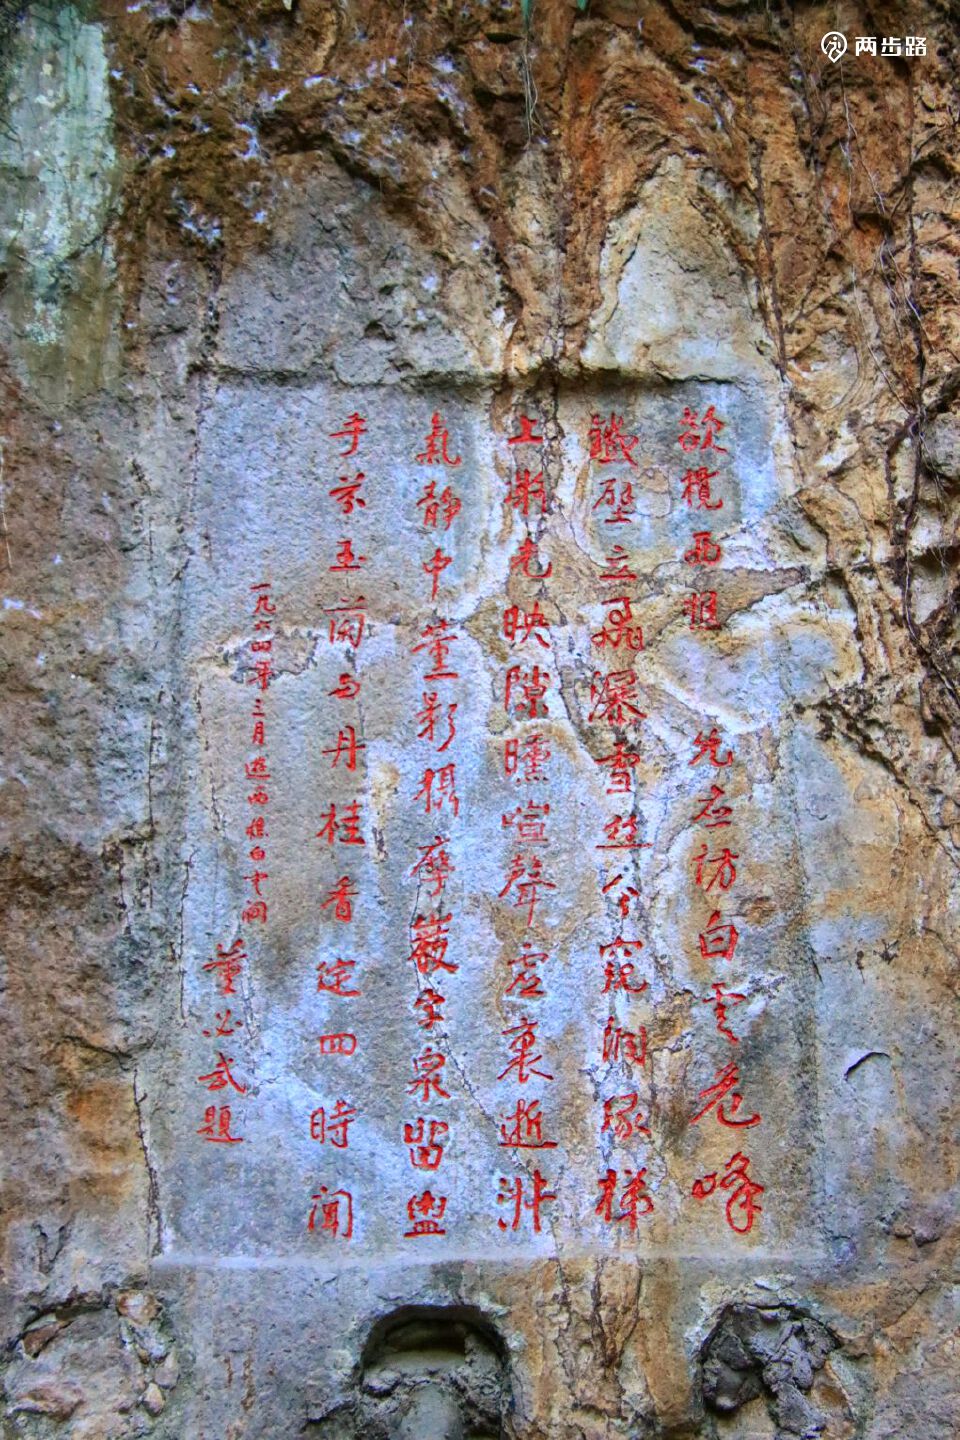 两步路
欲攬西樵先应訪白雲危峰
鐵壁立飛瀑雪丝分窺洞緣梯
上斜光映隙曛喧聲虚裏逝淑
氣静中薰影攝摩巖字泉留盥
手芬玉蘭与丹桂香從四時聞
一九六四年三月遊西樵白雲洞
董必武題